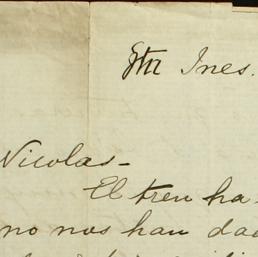 Str Ines.
Nicolas-
El tren ha
no nos han dad